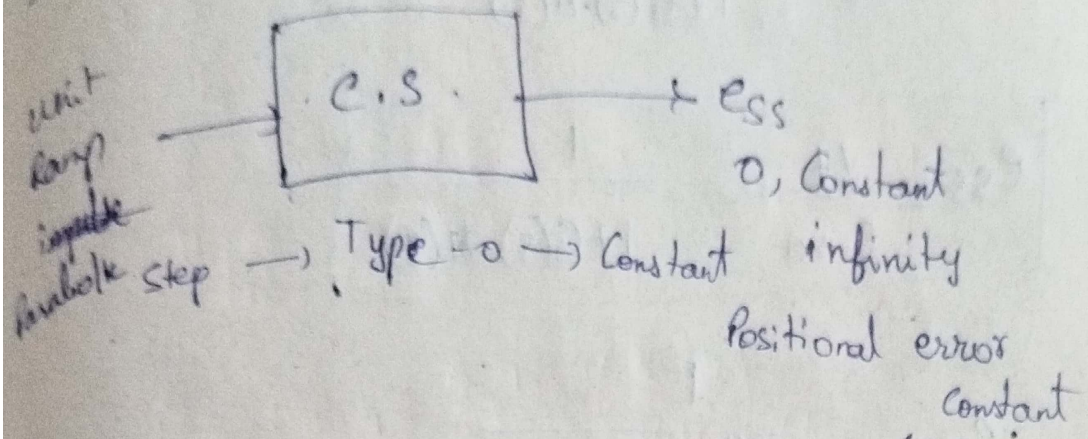 unit
Ramp
impulse
Parabolic
C.S.
ess
0, Constant
infinity
Step → Type-0 → Constant
Positional error
Constant